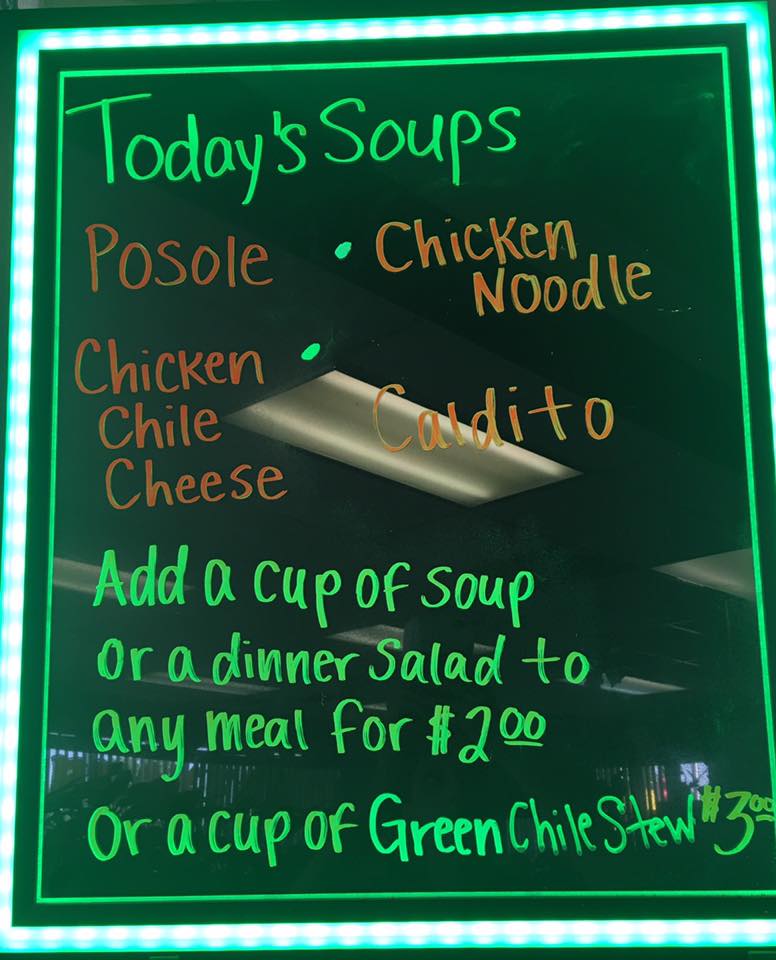 Today's Soups
Posole
• Chicken
Noodle
Chicken •
Chile
Cheese
Caldito
Add a cup of soup
or a dinner salad to
any meal for $2.00
Or a cup of Green Chile Stew $3.00